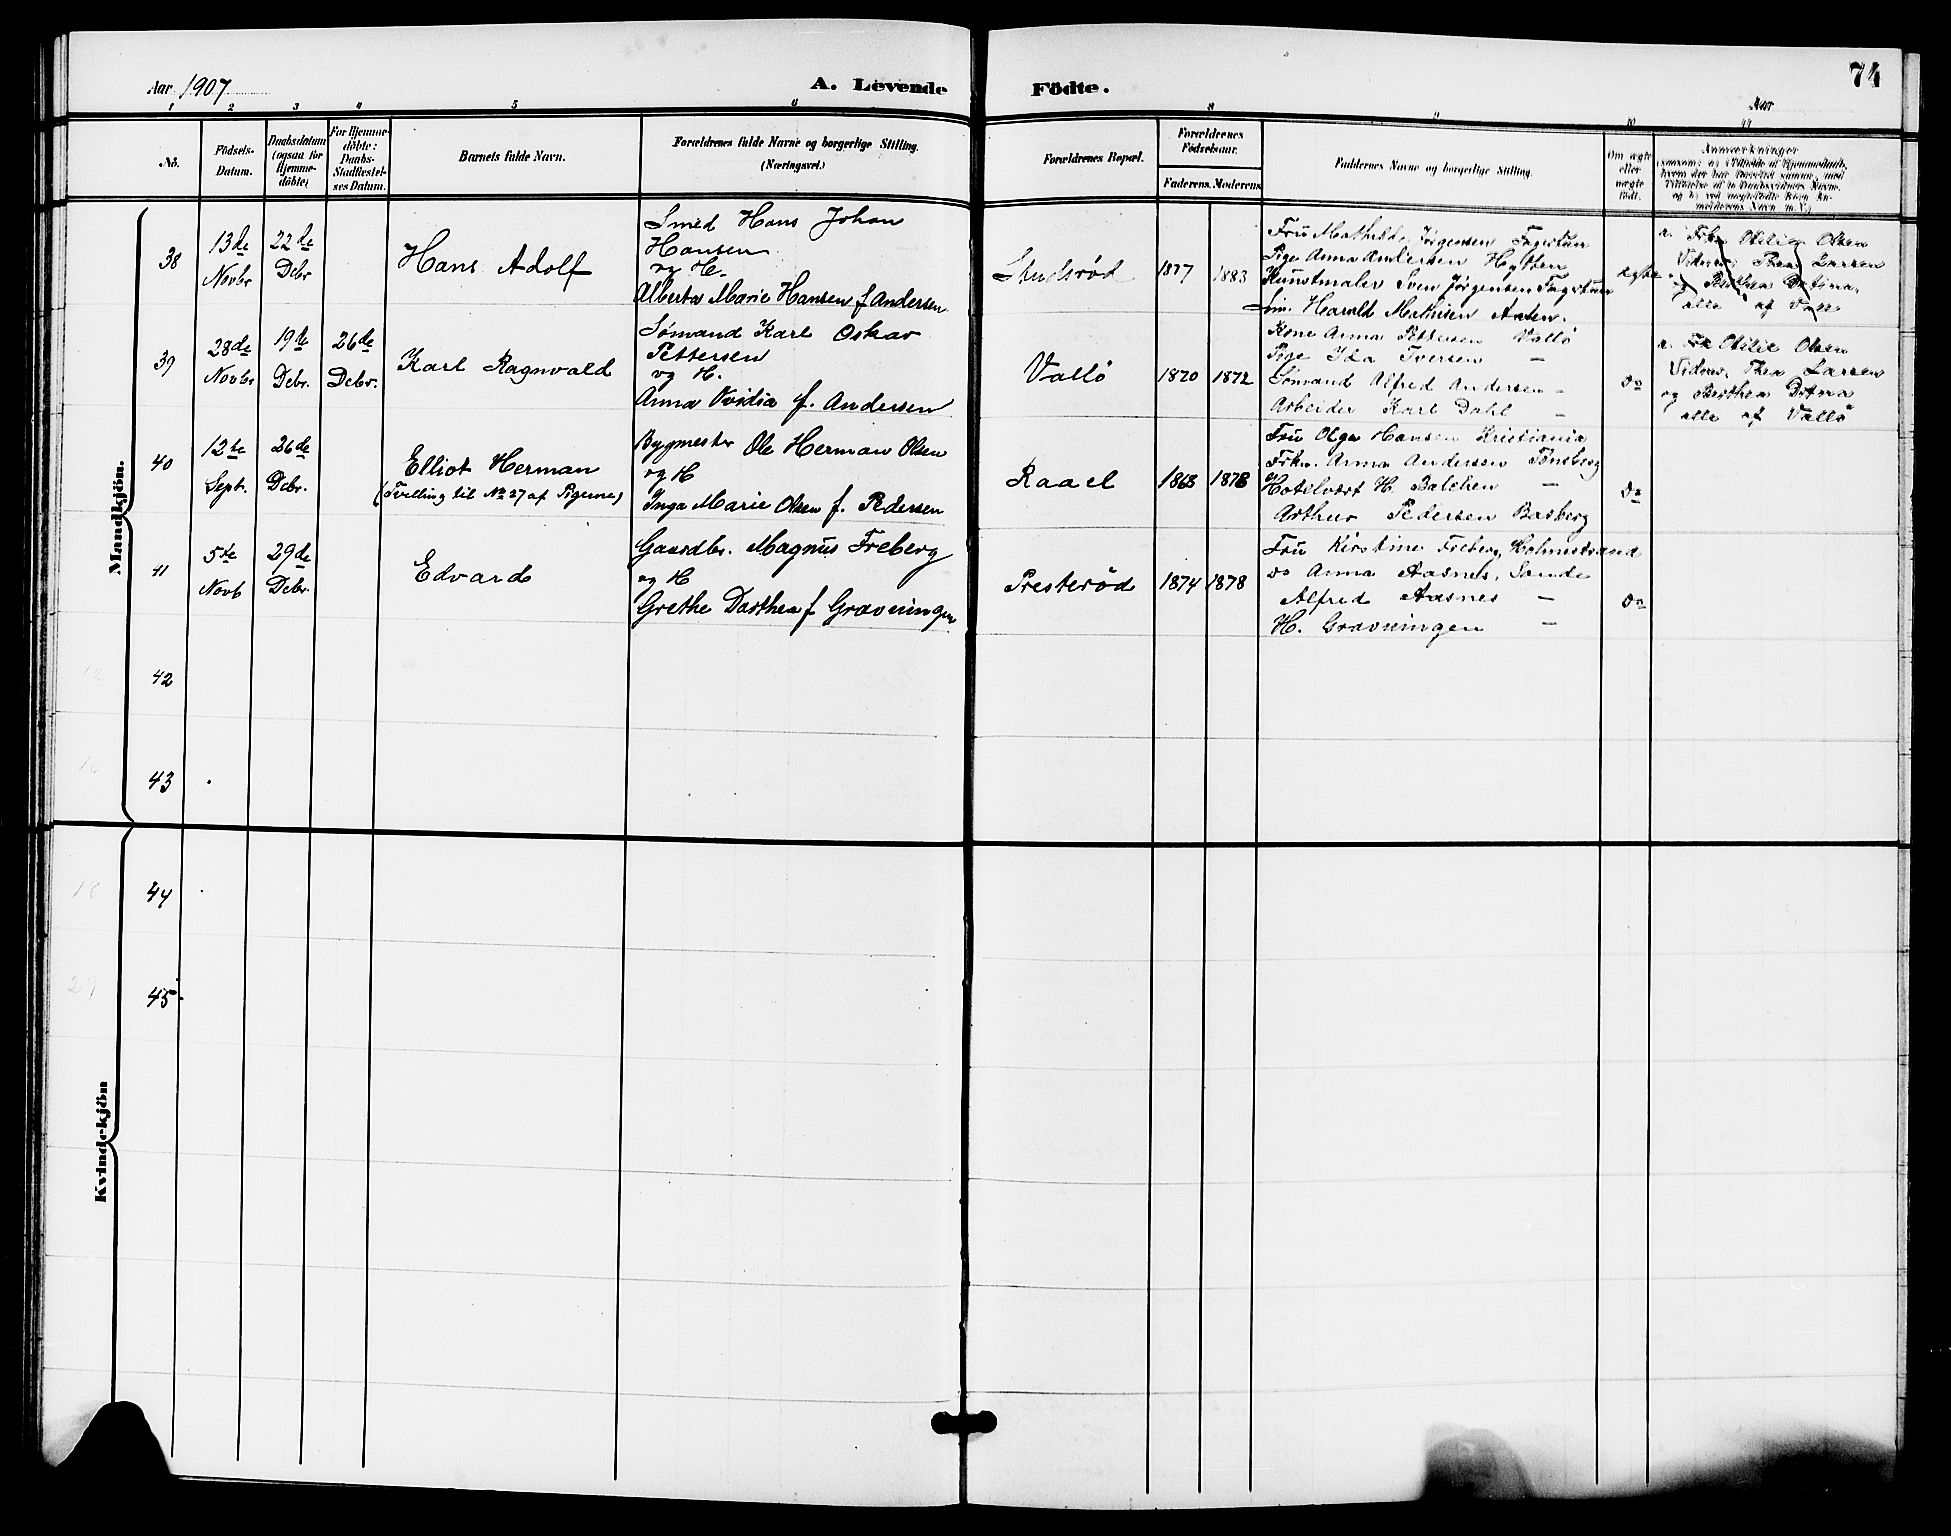 74
Aar 1907
A. Levende Födte.
Aar
1 2 3 4 5 6 8 9 10 11
No.
Födsels-Datum.
Daabsdatum (ogsaa for Hjemme-döbte;
For Hjemme-döbte: Daabs-Stadfæstel-ses Datum.
Barnets fulde Navn.
Forældrenes fulde Navne og borgerlige Stilling.
(Næringsvei.)
Forældrenes Bopæl.
Forældrenes Födselsaar.
Faderens. Moderens.
Faddernes Navne og borgerlige Stilling.
Om ægte eller uægte født.
Anmærkninger
Mandkjön.
38
13de Novbr
22de Debr
Hans Adolf
Smed Hans Johan
Hansen
og H.
Alberta Marie Hansen f Andersen
1877 1883
Fru Mathilde Jørgensen Fagertun
Pige Anna Andersen Hytten
Kunstmaler Sven Jørgensen Fagertun
Harald Mathisen
ægte
a. Frk Otilie Olsen
Vidner, Thea Larsen
og Berthea
alle af Vallø
39
28de Novbr
19de Debr.
26de Debr.
Karl Ragnvald
Sømand Karl Oskar
Pettersen
og H.
Anna Ovidia f. Andersen
Vallø
1870 1872
Kone Anna Pettersen Vallø
Pige Ida Iversen —
Sømand Alfred Andersen —
Arbeider Karl Dahl —
Do
a. Frk Otilie Olsen
Vidner, Thea Larsen
og Berthea
alle af Vallø
40
12te Sept.
26de Debr.
Elliot Herman
(Tvilling til No 27 af Pigerne)
Bygmester Ole Herman Olsen
og H
Inga Marie Olsen f. Pedersen
Raael
1868 1878
Fru Olga Hansen Kristiania
Frkn. Anna Andersen Tønsberg
Hotelvært H. Balchen —
Arthur Pedersen Basberg
Do
41
5te Novb
29de Debr.
Edvard
Gaardbr. Magnus Freberg
og H
Grethe Dorthea f Gravningen
Presterød
1874 1878
Fru Kirstine Freberg, Holmestrand
Do Anna Aasnes, Sande
Alfred Aasnes —
H. Gravningen —
Do
42
43
Kvindekjön
44
45